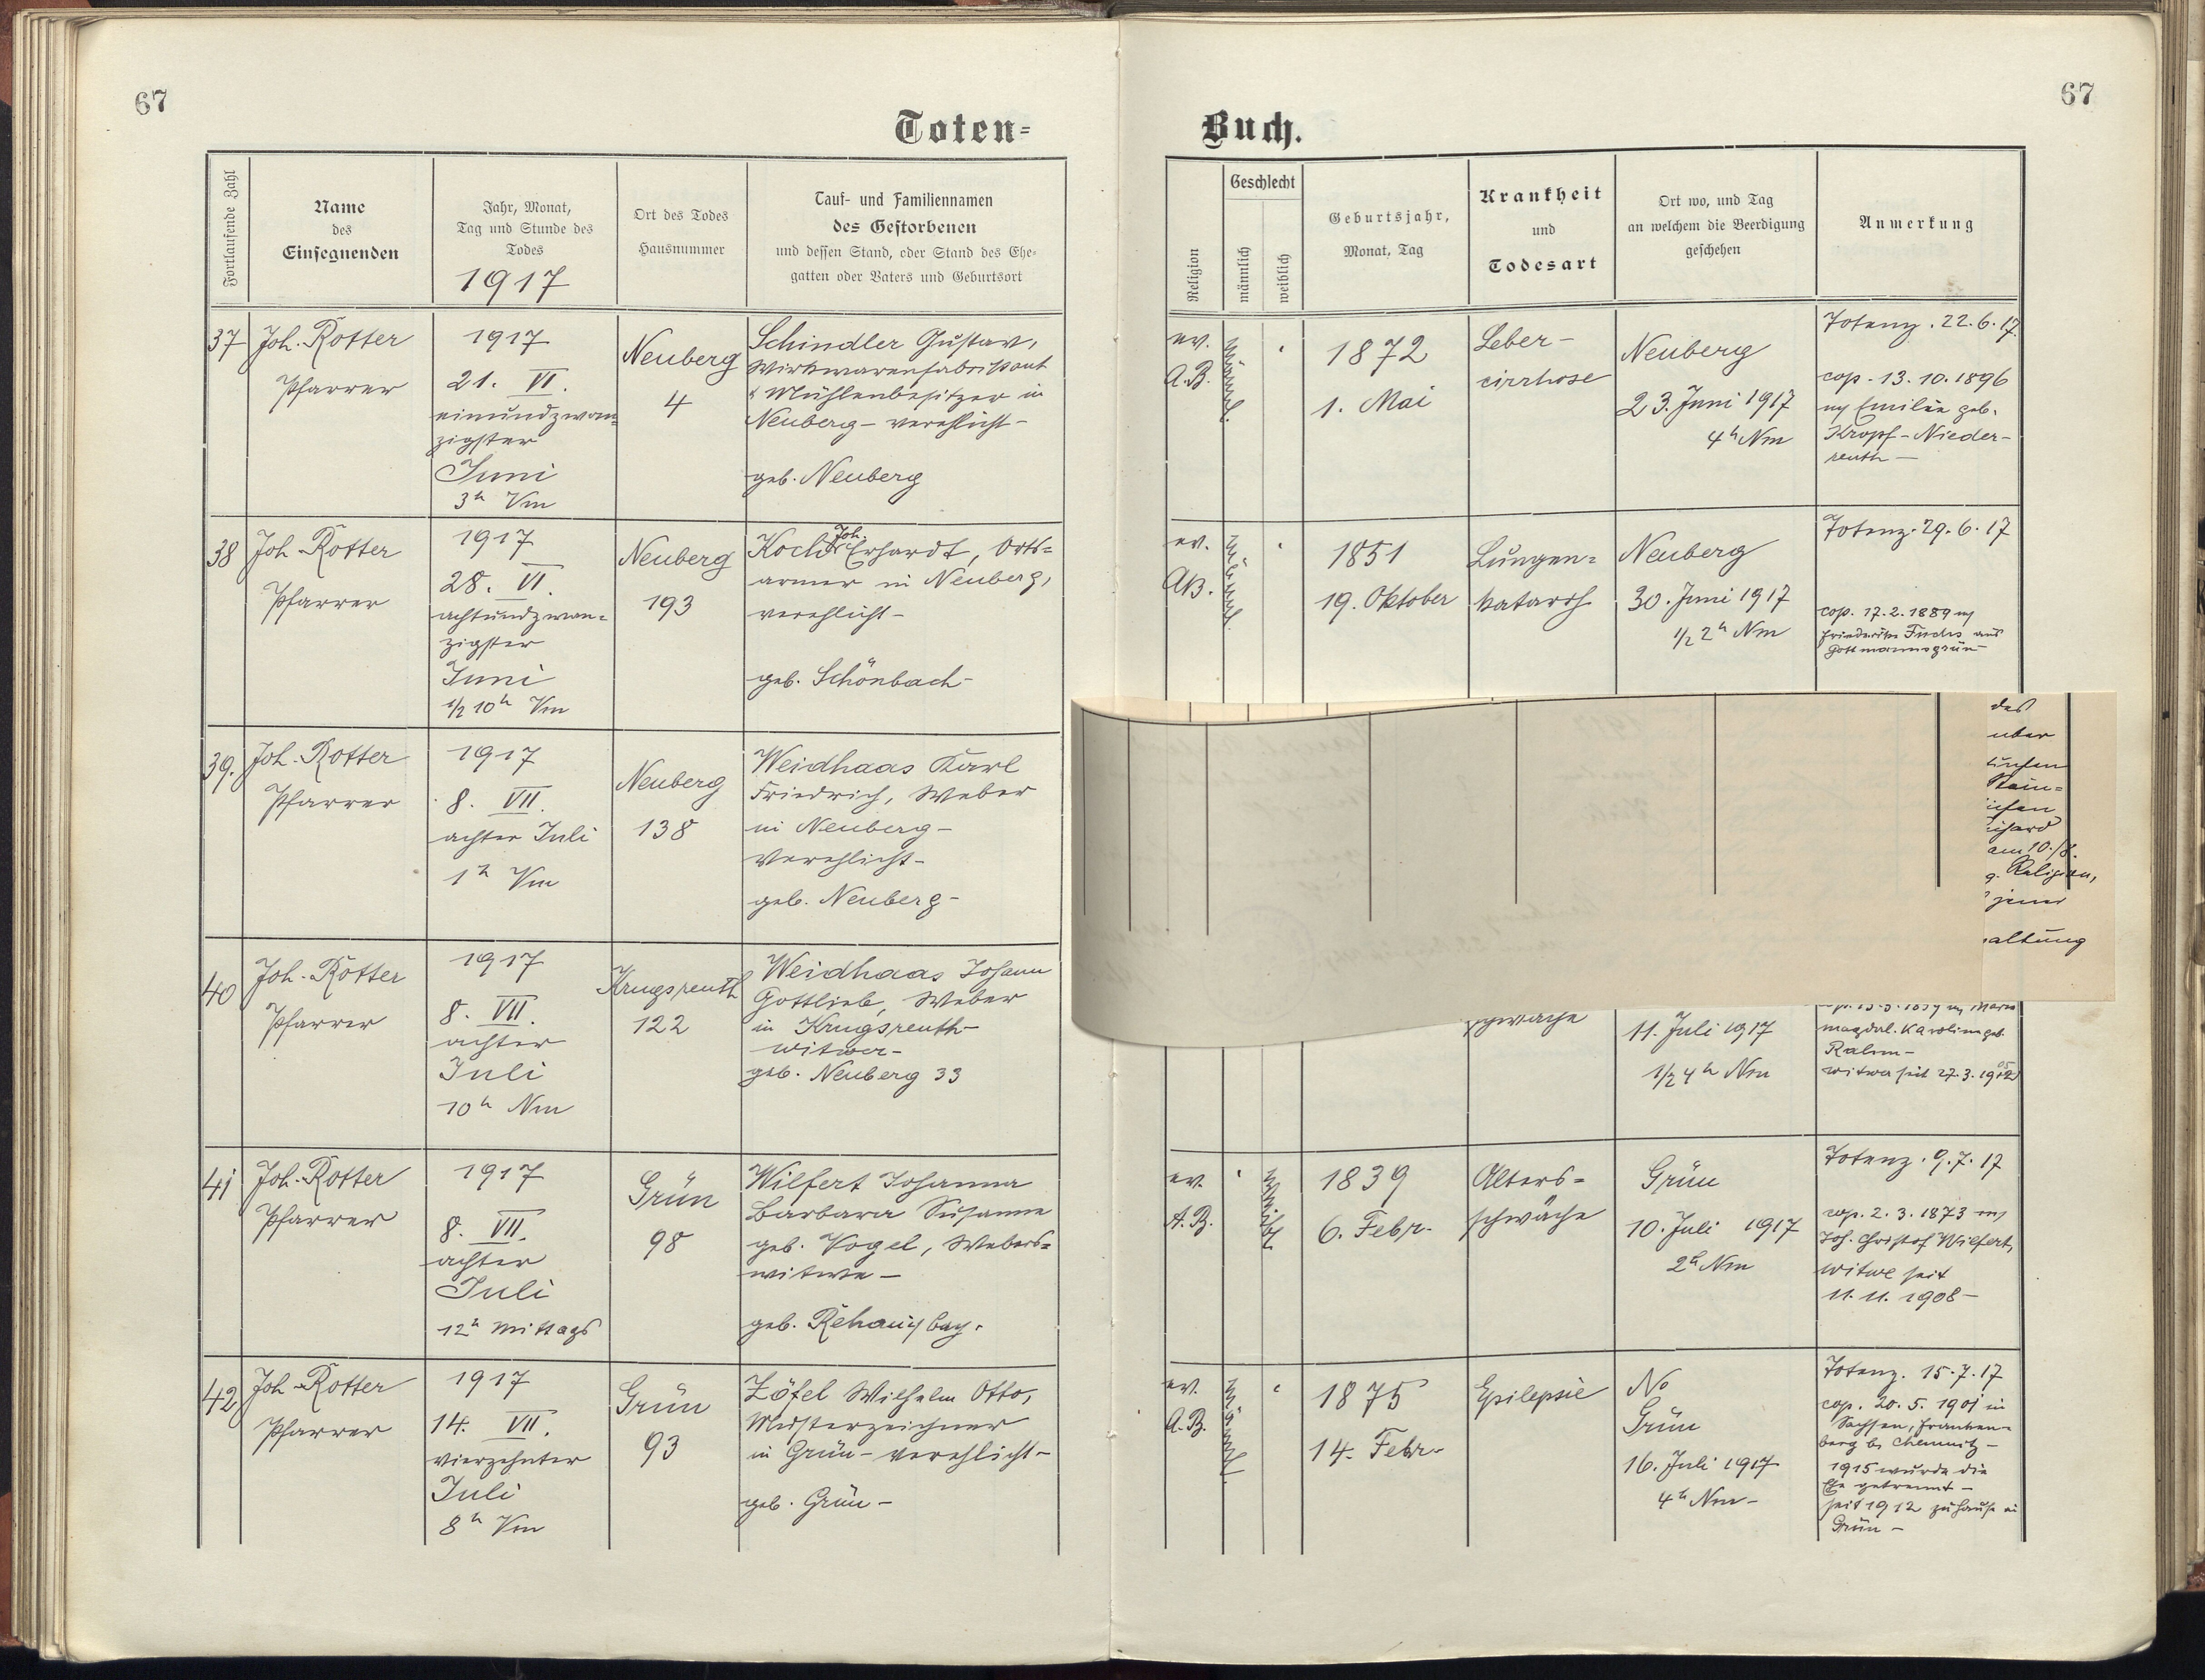 67
67
Toten-
Buch.
Fortlaufende Zahl
Name
des
Einsegnenden
Jahr, Monat,
Tag und Stunde des
Todes
1917
Ort des Todes
Hausnummer
Tauf- und Familiennamen
des Gestorbenen
und dessen Stand, oder Stand des Ehe-
gatten oder Vaters und Geburtsort
Religion
Geschlecht
männlich
weiblich
Geburtsjahr,
Monat, Tag
Krankheit
und
Todesart
Ort wo, und Tag
an welchem die Beerdigung
geschehen
Anmerkung
37
Joh. Rotter
Pfarrer
1917
21. VI.
einundzwan-
zigster
Juni
3h Vm
Neuberg
4
Schindler Gustav,
Wirkwarenfabrikant
& Mühlenbesitzer in
Neuberg - verehlicht -
geb. Neuberg
ev.
A.B.
männl.
1872
1. Mai
Leber-
cirrhose
Neuberg
23. Juni 1917
4h Nm
Totenz. 22.6.17.
cop. 13.10.1896
m Emilie geb.
Kropf - Nieder-
reuth -
38
Joh. Rotter
Pfarrer
1917
28. VI.
achtundzwan-
zigster
Juni
1/2 10h Vm
Neuberg
193
Joh.
Koch Erhardt, Orts-
armer in Neuberg,
verehlicht -
geb. Schönbach -
ev.
AB.
männl.
1851
19. Oktober
Lungen-
katarrh
Neuberg
30. Juni 1917
1/2 2h Nm
Totenz. 29.6.17
cop. 17.2.1889 m
Friederike Fuchs aus
Gottmannsgrün
39.
Joh. Rotter
Pfarrer
1917
8. VII.
achter Juli
1h Vm
Neuberg
138
Weidhaas Karl
Friedrich, Weber
in Neuberg -
verehlicht -
geb. Neuberg -
des
über
Stein-
am 10./8.
g. Religion,
jener
altung
40
Joh. Rotter
Pfarrer
1917
8. VII.
achter
Juli
10h Nm
Krugsreuth
122
Weidhaas Johann
Gottlieb, Weber
in Krugsreuth -
witwer -
geb. Neuberg 33
11. Juli 1917
1/2 4h Nm
magdal. Karolina geb.
Rahm -
witwer seit 27.3.19
41
Joh. Rotter
Pfarrer
1917
8. VII.
achter
Juli
12h mittags
Grün
98
Wilfert Johanna
Barbara Susanne
geb. Vogel, Webers-
witwe -
geb. Rehau bay.
ev.
A.B.
weibl.
1839
6. Febr.
Alters-
schwäche
Grün
10. Juli 1917
2h Nm
Totenz. 9.7.17
cop. 2.3.1873 m
Joh. Christof Wilfert,
witwe seit
11.11.1908 -
42
Joh. Rotter
Pfarrer
1917
14. VII.
vierzehnter
Juli
8h Vm
Grün
93
Zöfel Wilhelm Otto,
Musterzeichner
in Grün - verehlicht -
geb. Grün -
ev.
A.B.
männl.
1875
14. Febr.
Epilepsie
No
Grün
16. Juli 1917
4h Nm -
Totenz. 15.7.17
cop. 20.5.1901 in
Sachsen, Franken-
berg b. Chemnitz -
1915 wurde die
Ehe getrennt -
seit 1912 zuhause in
Grün -